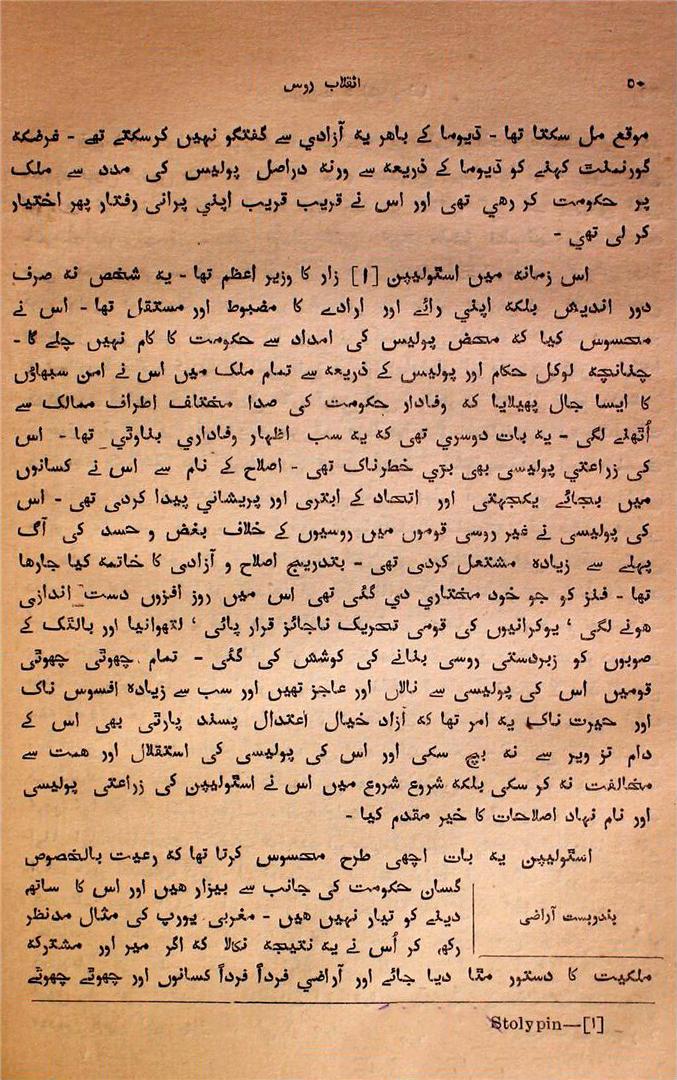 ۵۰ انقلاب روس
موقع مل سکتا تھا - ڈیوما کے باھر یہ آزادي سے گفتگو نہیں کرسکتے تھے - غرضکہ
گورنمنٹ کہنے کو ڈیوما کے ذریعہ سے ورنہ دراصل پولیس کی مدد سے ملک
پر حکومت کر رھي تھی اور اس نے قریب قریب اپني پرانی رفتار پھر اختیار
کر لی تھي -
اس زمانہ میں استولیپن [۱] زار کا وزیر اعظم تھا - یہ شخص نہ صرف
دور اندیش بلکہ اپني رائے اور ارادے کا مضبوط اور مستقل تھا - اس نے
محسوس کیا کہ محض پولیس کی امداد سے حکومت کا کام نہیں چلے گا -
چنانچہ لوکل حکام اور پولیس کے ذریعہ سے تمام ملک میں اس نے امن سبھاؤں
کا ایسا جال پھیلایا کہ وفادار حکومت کی صدا مختلف اطراف ممالک سے
اُتھنے لگی - یہ بات دوسري تھی کہ یہ سب اظہار وفاداري بناوٹي تھا - اس
کی زراعتي پولیسی بھی بڑی خطرناک تھی - اصلاح کے نام سے اس نے کسانوں
میں بجائے یکجہتی اور اتحاد کے ابتری اور پریشاني پیدا کردی تھی - اس
کی پولیسی نے غیر روسی قوموں میں روسیوں کے خلاف بغض و حسد کی آگ
پہلے سے زیادہ مشتعل کردی تھی - بتدریج اصلاح و آزادی کا خاتمہ کیا جارھا
تھا - فنز کو جو خود مختاري دی گئی تھی اس میں روز افزوں دست اندازی
ھونے لگی ' یوکرانیوں کی قومی تحریک ناجائز قرار پائی ' لتھوانیا اور بالٹک کے
صوبوں کو زبردستی روسی بنانے کی کوشش کی گئی - تمام چھوٹی چھوٹی
قومیں اس کی پولیسی سے نالاں اور عاجز تھیں اور سب سے زیادہ افسوس ناک
اور حیرت ناک یہ امر تھا کہ آزاد خیال اعتدال پسند پارٹی بھی اس کے
دام تز ویر سے نہ بچ سکی اور اس کی پولیسی کی استقلال اور ھمت سے
مخالفت نہ کر سکی بلکہ شروع شروع میں اس نے استولیپن کی زراعتي پولیسی
اور نام نہاد اصلاحات کا خیر مقدم کیا -
استولیپن یہ بات اچھی طرح محسوس کرتا تھا کہ رعیت بالخصوص
بندوبست آراضی
کسان حکومت کی جانب سے بیزار ھیں اور اس کا ساتھ
دینے کو تیار نہیں ھیں - مغربی یورپ کی مثال مدنظر
رکھہ کر اُس نے یہ نتیجہ نکالا کہ اگر میر اور مشترکہ
ملکیت کا دستور مٹا دیا جائے اور آراضي فرداً فرداً کسانوں اور چھوٹے چھوٹے
[۱]—Stolypin